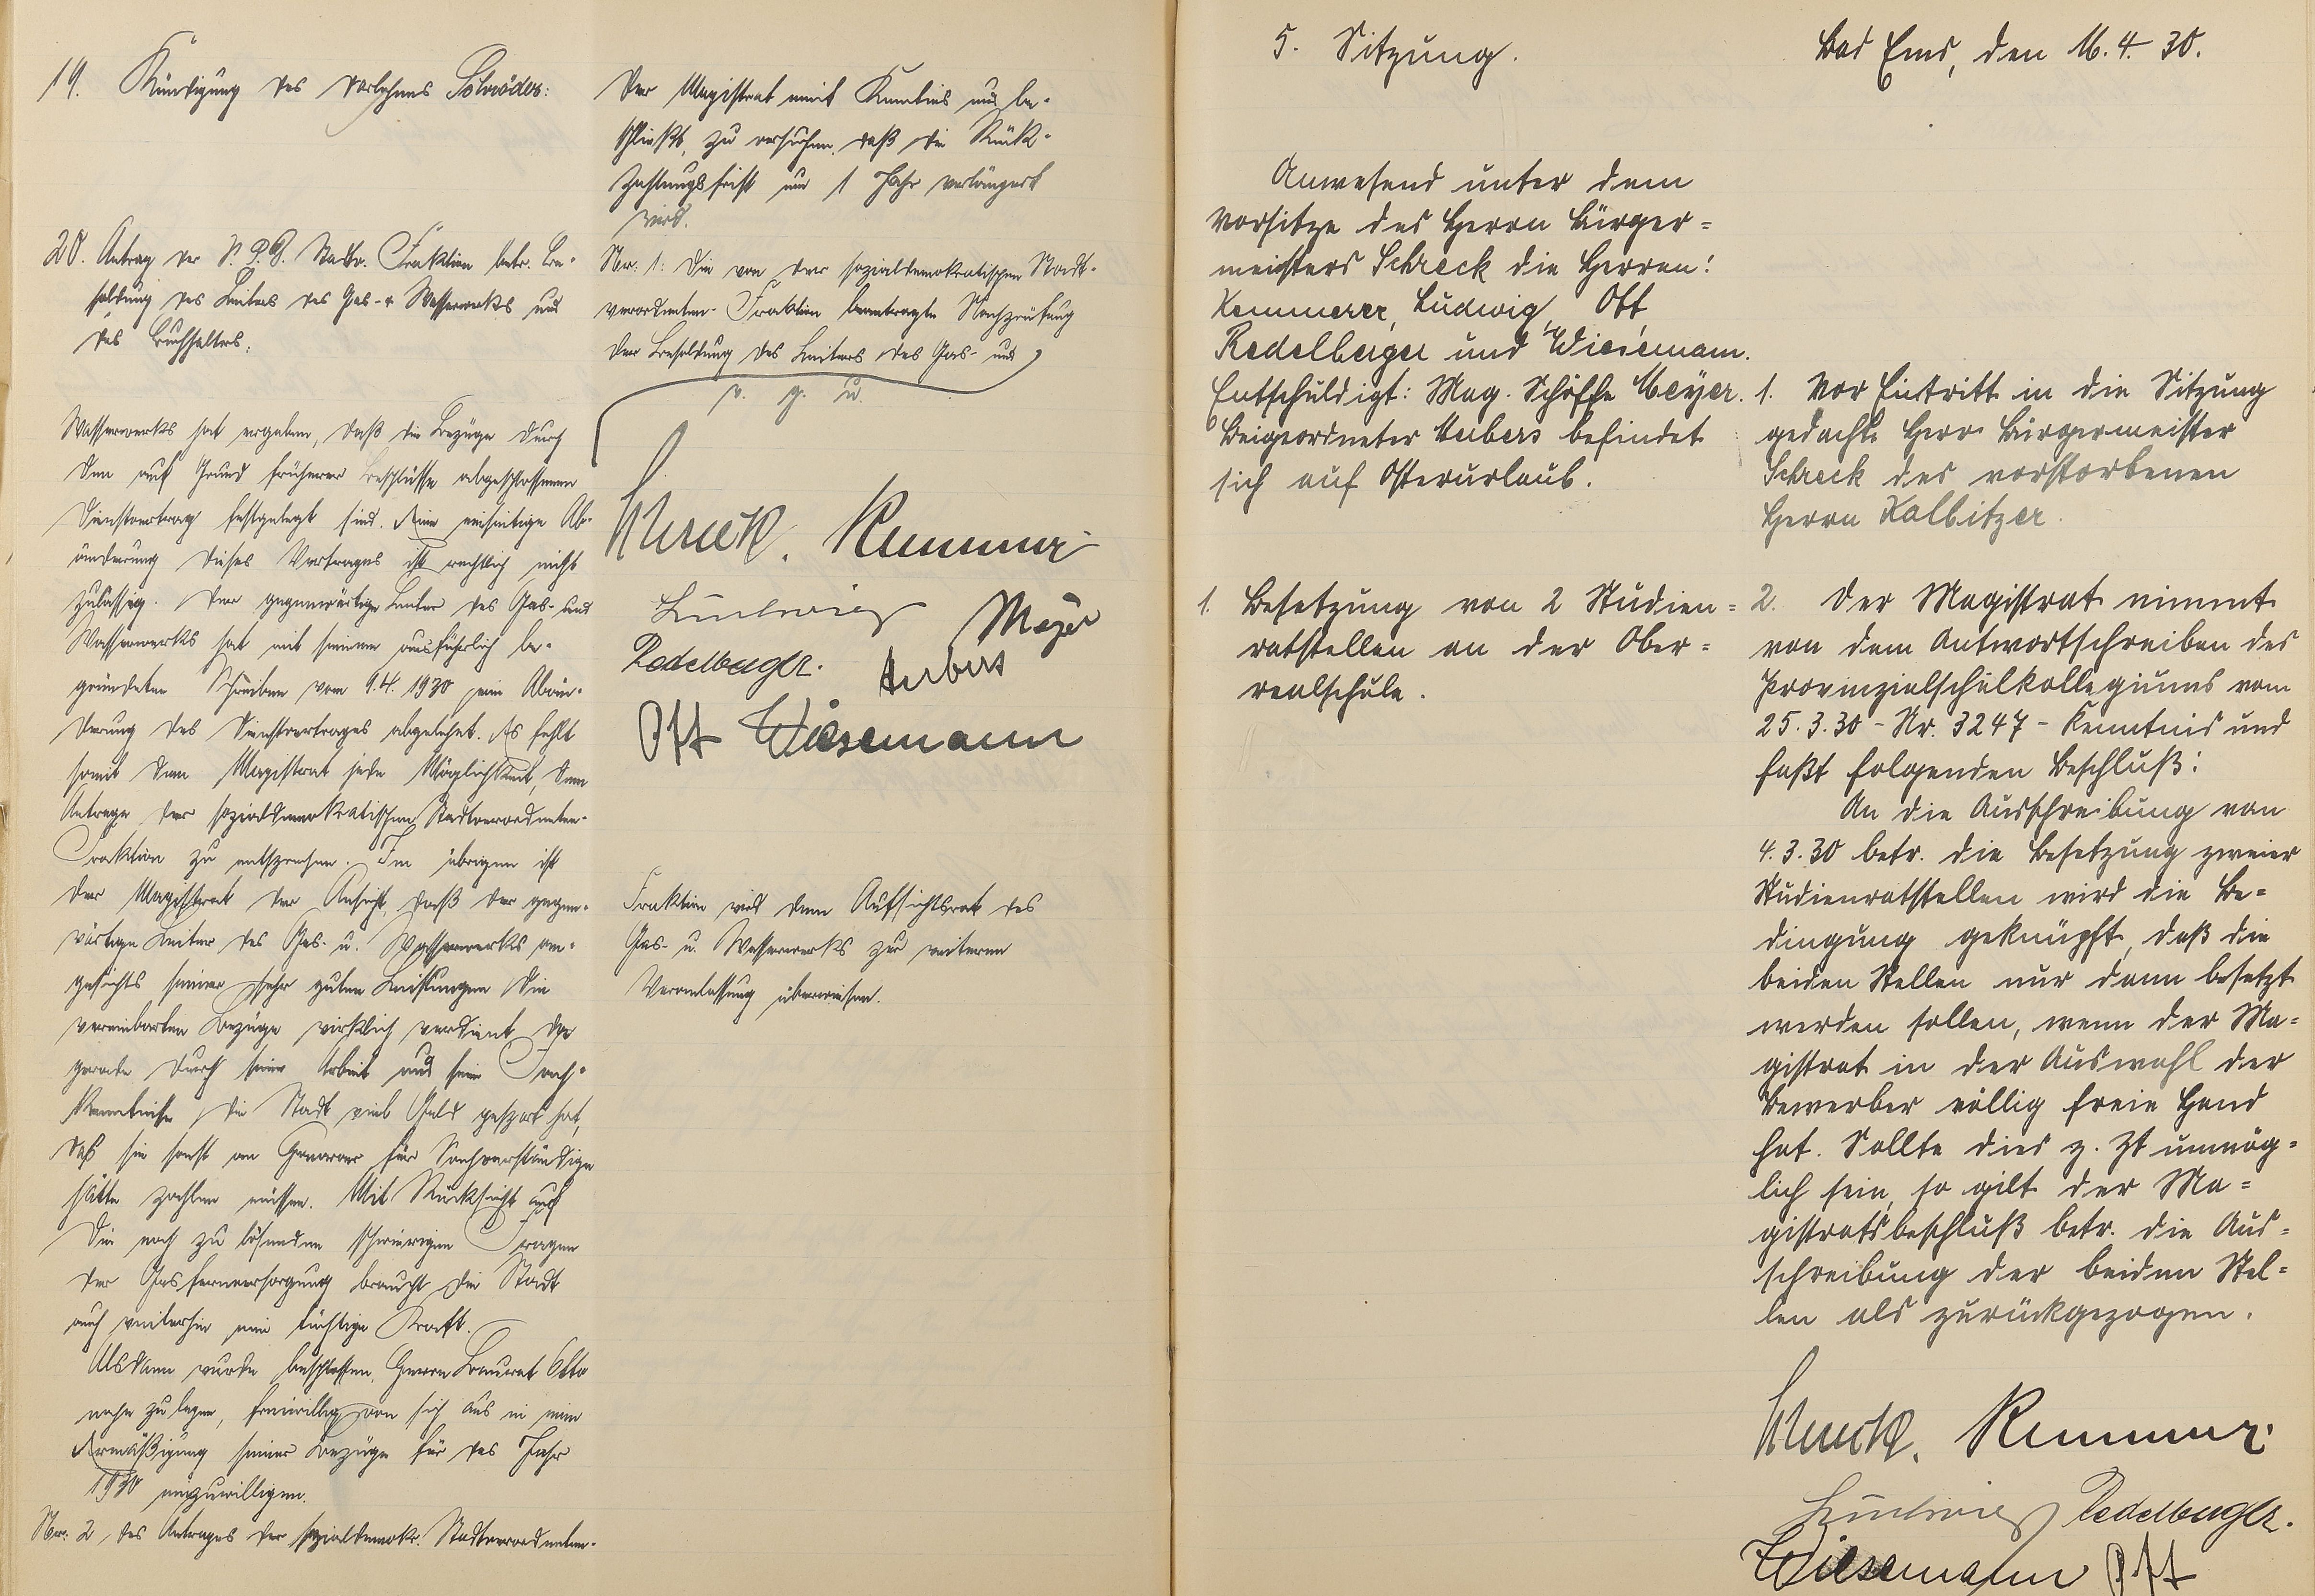 19. Kündigung des Darlehns Schröder:
Der Magistrat nimmt Kenntnis und be-
schließt, zu versuchen, daß die Rück-
zahlungsfrist um 1 Jahr verlängert
wird.
20. Antrag der S.P.D. Stadtv. Fraktion betr. Be-
soldung des Leiters des Gas- u Wasserwerks und
des Buchhalters.
Nr. 1: Die von der sozialdemokratischen Stadt-
verordneten-Fraktion beantragte Nachprüfung
der Besoldung des Leiters des Gas- und
Wasserwerks hat ergeben, daß die Bezüge durch
den auf Grund früherer Beschlüsse abgeschlossenen
Dienstvertrag festgelegt sind. Eine einseitige Ab-
änderung dieses Vertrages ist rechtlich nicht
zulässig. Der gegenwärtige Leiter des Gas- und
Wasserwerks hat mit seinem ausführlich be-
gründeten Schreiben vom 9.4. 1930 eine Abän-
derung des Dienstvertrages abgelehnt. Es fehlt
somit dem Magistrat jede Möglichkeit, dem
Antrage der sozialdemokratischen Stadtverordneten-
Fraktion zu entsprechen. Im übrigen ist
der Magistrat der Ansicht, daß der gegen-
wärtige Leiter des Gas- u. Wasserwerks an-
gesichts seiner sehr guten Leistungen die
vereinbarten Bezüge wirklich verdient, da
gerade durch seine Arbeit und seine Fach-
kenntnisse die Stadt viel Geld gespart hat,
daß sie sonst an Honorar für Sachverständige
hätte zahlen müssen. Mit Rücksicht auf
die noch zu lösenden schwierigen Fragen
der Gasfernversorgung braucht die Stadt
auch weiterhin eine tüchtige Kraft.
Alsdann wurde beschlossen, Herrn Baurat Otto
nahe zu legen, freiwillig von sich aus in eine
Ermäßigung seiner Bezüge für das Jahr
1930 einzuwilligen.
Nr. 2 des Antrages der sozialdemokr. Stadtverordneten-
Fraktion wird dem Aufsichtsrat des
Gas- u. Wasserwerks zur weiteren
Veranlassung überwiesen.
v. g. u.
Schreck. Kemmerer
Ludwig Meyer
Redelberger. Hubers
Ott Wiesemann
5. Sitzung.
Bad Ems, den 16.4.30.
Anwesend unter dem
Vorsitze des Herrn Bürger=
meisters Schreck die Herren:
Kemmerer, Ludwig, Ott,
Redelberger und Wiesemann.
Entschuldigt: Mag. Schöffe Meyer.
Beigeordneter Hubers befindet
sich auf Osterurlaub.
1. Vor Eintritt in die Sitzung
gedachte Herr Bürgermeister
Schreck des verstorbenen
Herrn Kalbitzer.
1. Besetzung von 2 Studien=
ratstellen an der Ober=
realschule.
2. Der Magistrat nimmt
von dem Antwortschreiben des
Provinzialschulkollegiums vom
25.3.30 - Nr. 3247 - Kenntnis und
faßt folgenden Beschluß:
An die Ausschreibung von
4.3.30 betr. die Besetzung zweier
Studienratstellen wird die Be=
dingung geknüpft, daß die
beiden Stellen nur dann besetzt
werden sollen, wenn der Ma=
gistrat in der Auswahl der
Bewerber völlig freie Hand
hat. Sollte dies z. Zt unmög=
lich sein, so gilt der Ma=
gistratsbeschluß betr. die Aus=
schreibung der beiden Stel=
len als zurückgezogen.
Schreck. Kemmerer
Ludwig Redelberger.
Wiesemann Ott